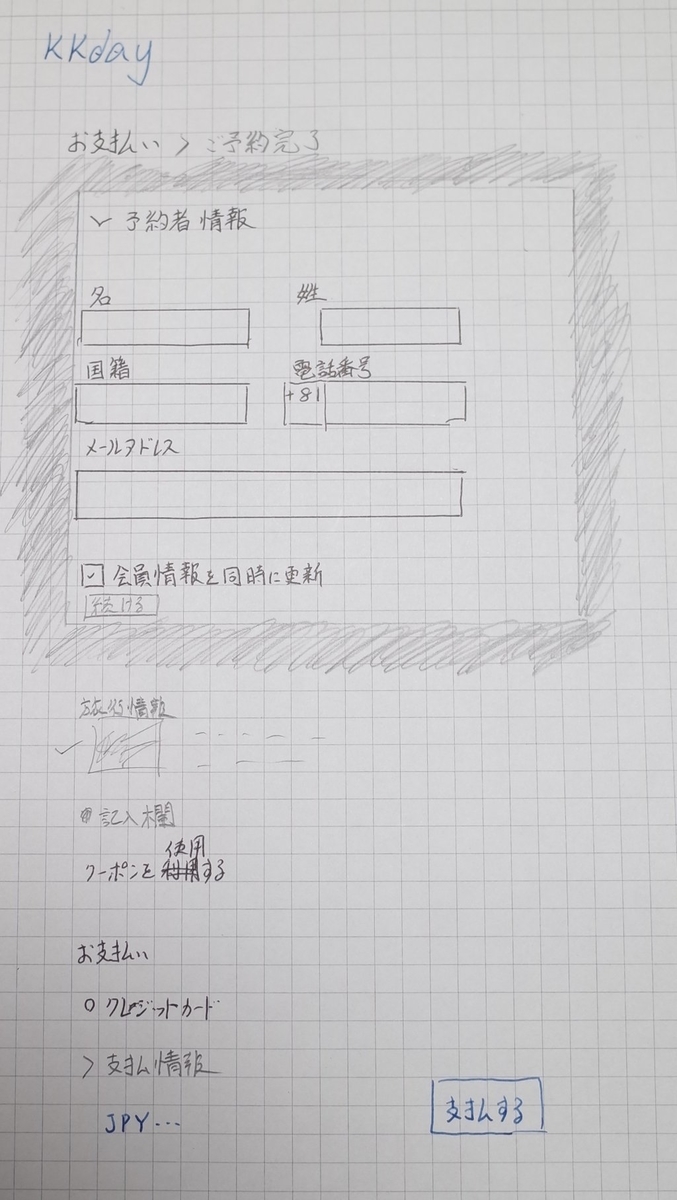 KKday
お支払い > ご予約完了
予約者情報
名 姓
国籍 電話番号
+81
メールアドレス
会員情報を同時に更新
続ける
旅行情報
記入欄
使用
クーポンを利用する
お支払い
クレジットカード
> 支払情報
JPY... 支払する